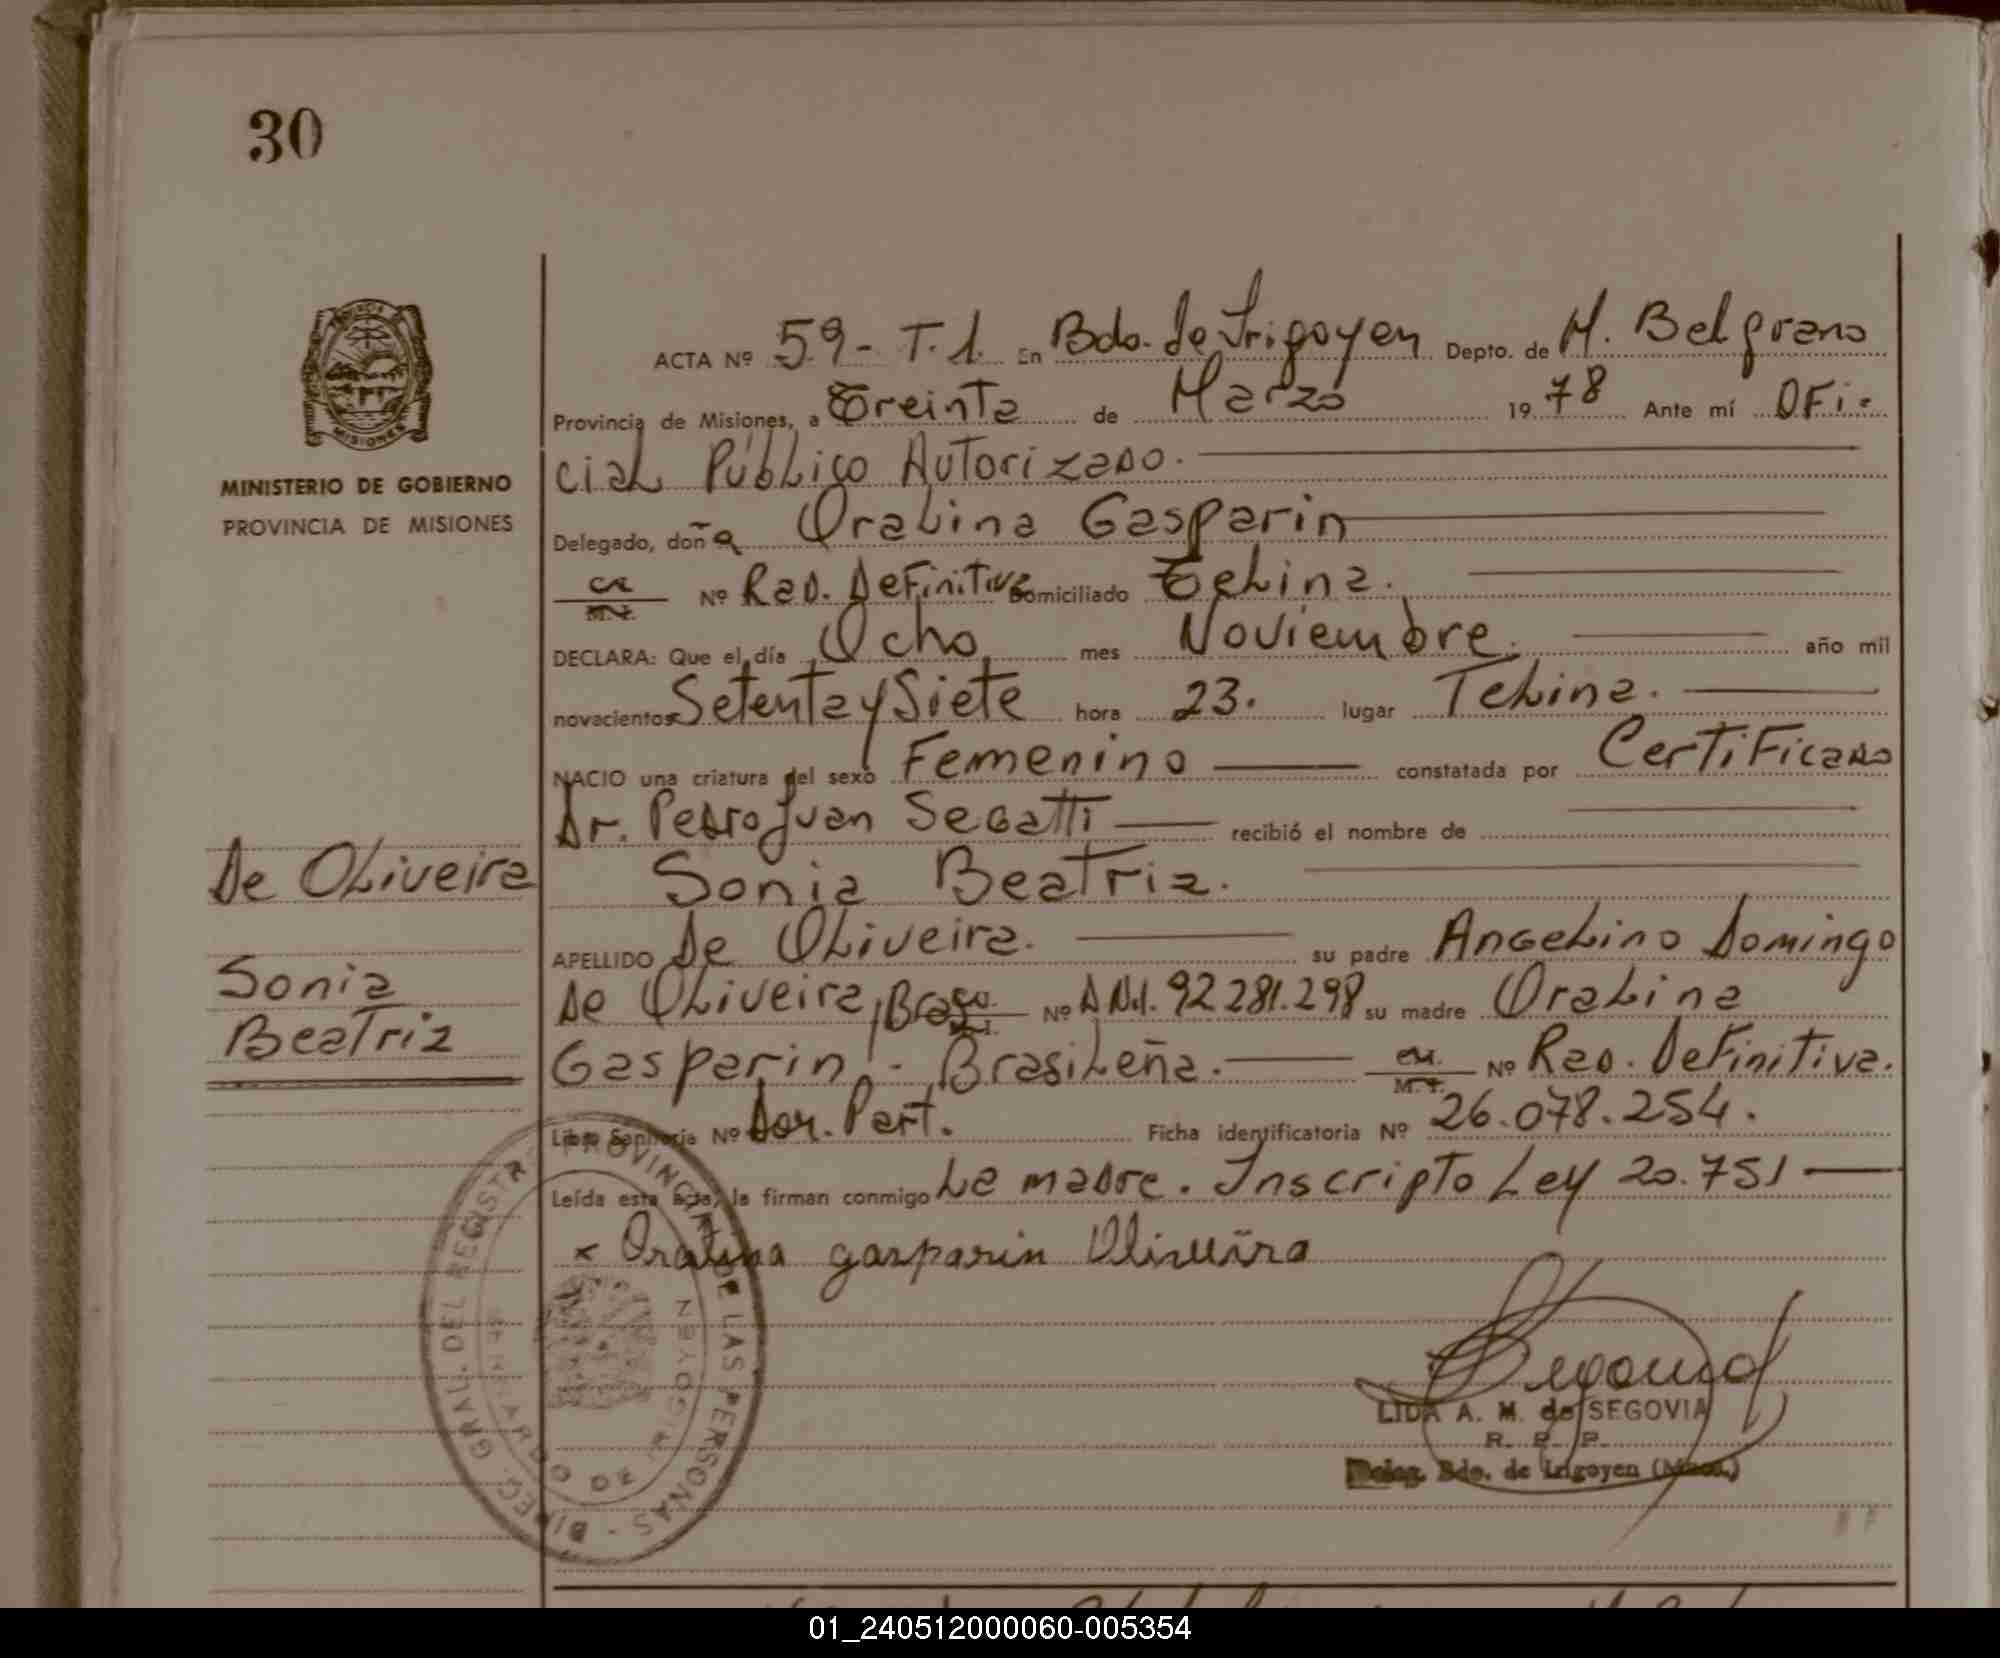 30
ACTA Nº 59 - T. 1. En Bdo. de Irigoyen Depto. de M. Belgrano
Provincia de Misiones, a Treinta de Marzo 1978 Ante mí OFi-
ciaL PúbLico AuTorizado.
MINISTERIO DE GOBIERNO
PROVINCIA DE MISIONES
Delegado, doña OraLina Gasparin
Nº Rad. DeFiniTiva Domiciliado TeLina.
DECLARA: Que el día Ocho mes Noviembre. año mil
novecientos Setenta y Siete hora 23. lugar TeLina.
NACIO una criatura del sexo Femenino constatada por CertiFicado
Dr. Pedro Juan Segatti recibió el nombre de
Sonia BeaTriz.
De OLiveira
APELLIDO De OLiveira. su padre AngeLino Domingo
Sonia
BeaTriz
De OLiveira, Bras. Nº D.N.I. 92.281.298 su madre OraLina
Gasparin - BrasiLeña. Nº Rad. DeFiniTiva.
Libro Sanitario Nº Dom. Part. Ficha identificatoria Nº 26.078.254.
Leída esta acta, la firman conmigo La madre. Inscripto Ley 20.751
x Oralina gasparin Oliveira
DIREC. GRAL. DEL REGISTRO PROVINCIAL DE LAS PERSONAS -
BERNARDO DE IRIGOYEN
LIDA A. M. de SEGOVIA
R. P. P.
Deleg. Bdo. de Irigoyen (Mnes.)
01_240512000060-005354